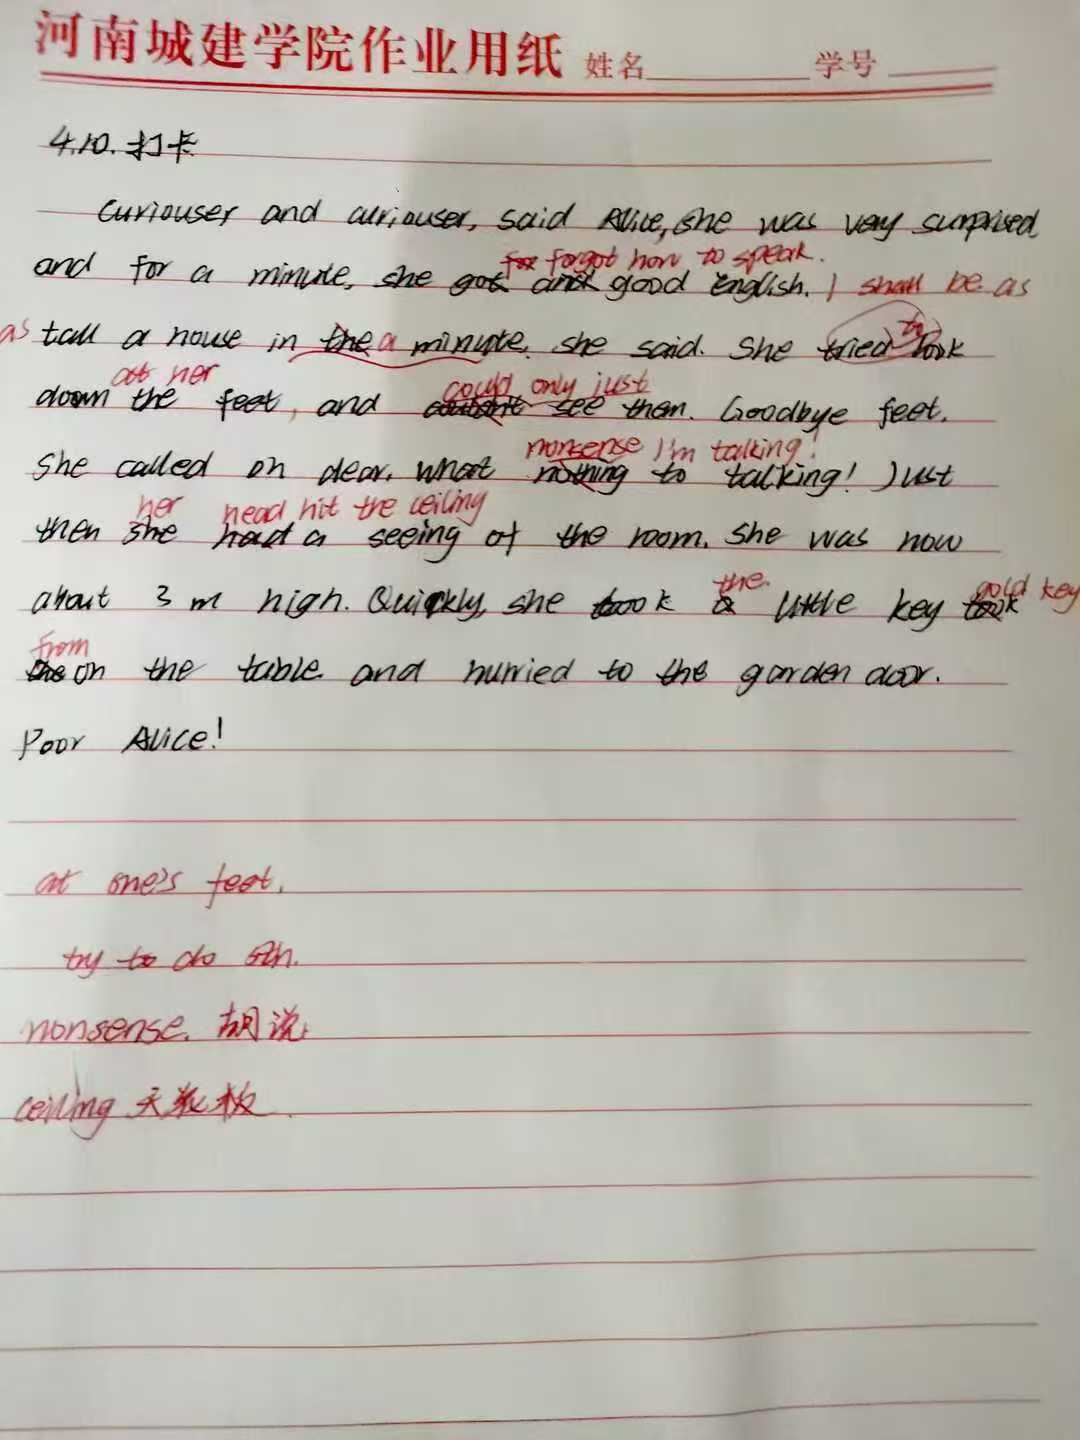 河南城建学院作业用纸 姓名 学号
4.10.打卡
Curiouser and curiouser, said Alice, she was very surprised
for forgot how to speak.
and for a minute, she got and good English. I shall be as
as tall a house in the a minute, she said. She tried to look
at her could only just
down the feet, and couldn't see them. Goodbye feet.
nonsense I'm talking!
She called oh dear. What nothing to talking! Just
her head hit the ceiling
then she had a seeing of the room. She was now
the. gold key
about 3 m high. Quickly, she took a little key took
from
the on the table and hurried to the garden door.
Poor Alice!
at one's feet.
try to do sth.
nonsense. 胡说
ceiling 天花板